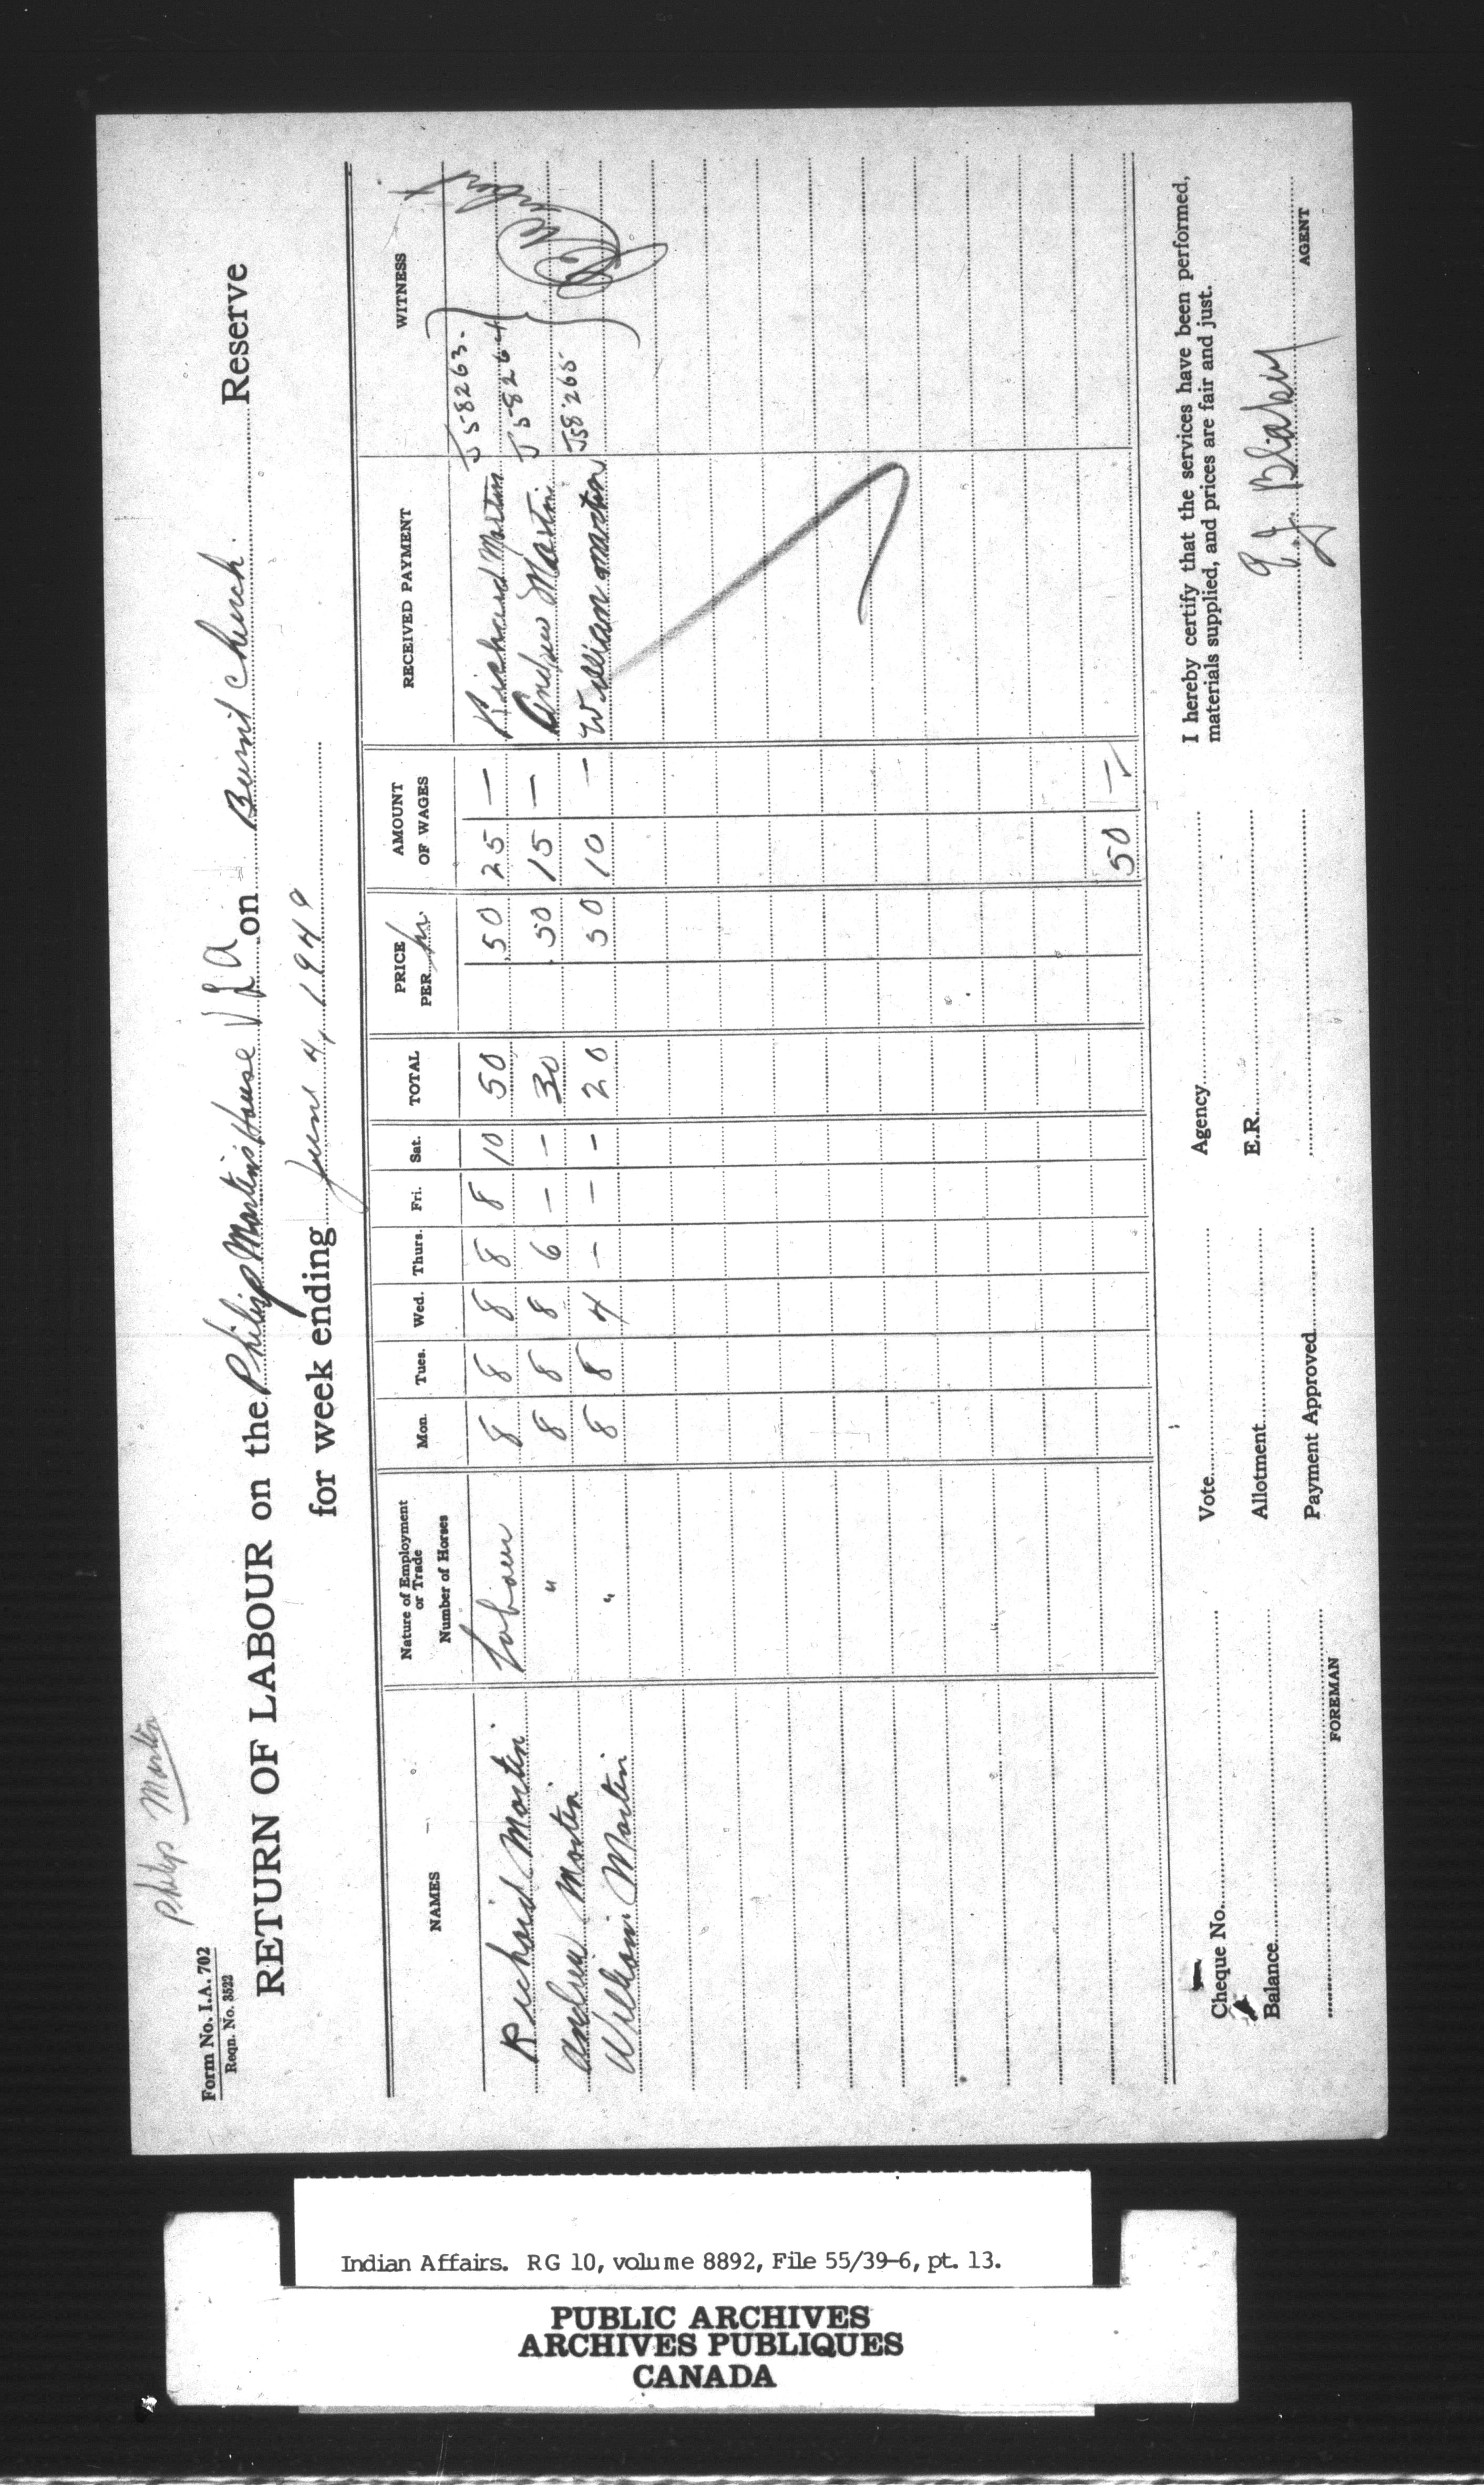 Philip Martin
Form No. I.A. 702
Reqn. No. 3522
RETURN OF LABOUR on the Philip Martin's House V L A on Burnt Church Reserve
for week ending June 4, 1949
NAMES Nature of Employment or Trade Number of Horses Mon. Tues. Wed. Thurs. Fri. Sat. TOTAL PRICE PER hr AMOUNT OF WAGES RECEIVED PAYMENT WITNESS
Richard Martin Labour 8 8 8 8 8 10 50 .50 25 — Richard Martin J58263
Andrew Martin " 8 8 8 6 — — 30 .50 15 — Andrew Martin J58264
William Martin " 8 8 4 — — — 20 50 10 — William Martin J58265
50 —
Cheque No. Vote Agency I hereby certify that the services have been performed,
materials supplied, and prices are fair and just.
Balance Allotment E.R.
Payment Approved E.J. Blakey
FOREMAN AGENT
Indian Affairs. RG 10, volume 8892, File 55/39-6, pt. 13.
PUBLIC ARCHIVES
ARCHIVES PUBLIQUES
CANADA